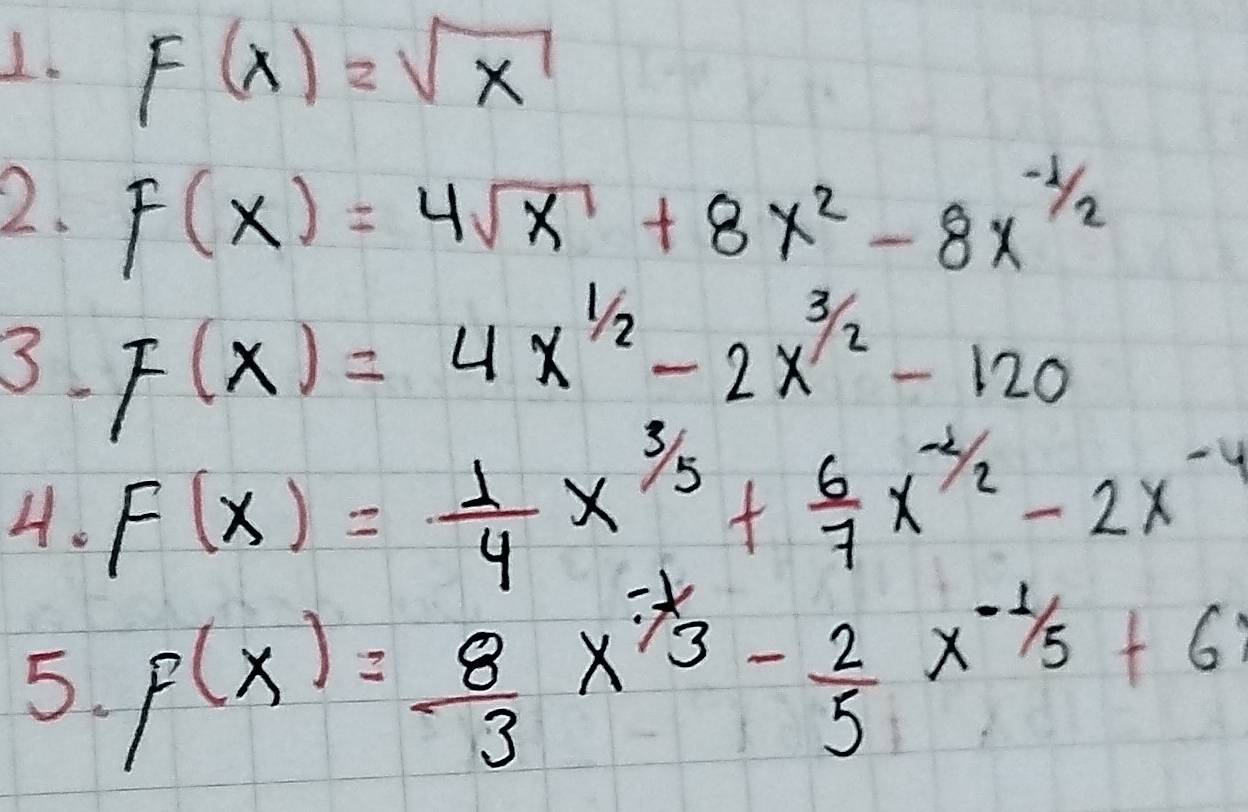 1. F(x) = √x
2. F(x) = 4√x + 8x² - 8x^-1/2
3. F(x) = 4x^1/2 - 2x^3/2 - 120
4. F(x) = 1/4 x^3/5 + 6/7 x^-1/2 - 2x^-4
5. F(x) = 8/3 x^-1/3 - 2/5 x^-1/5 + 6